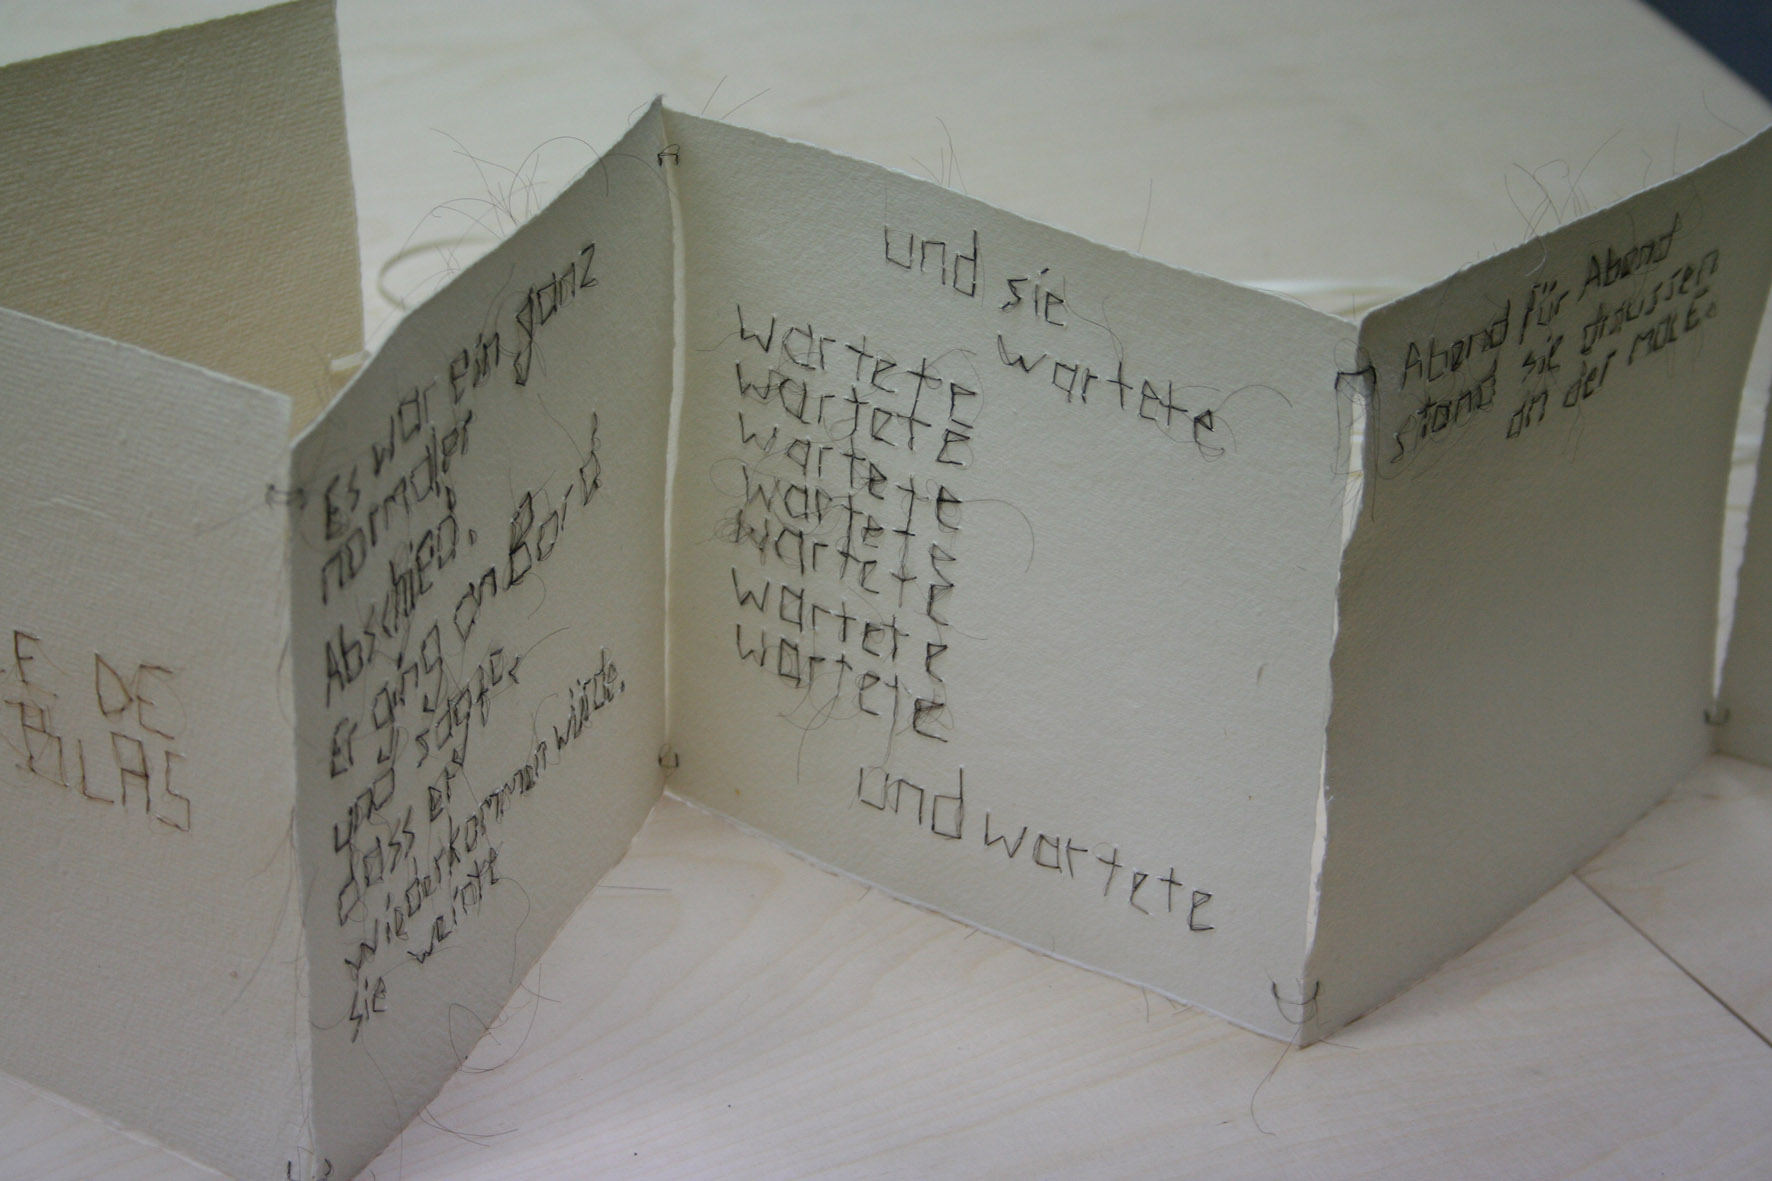 E DE
Es war ein ganz
normaler
Abschied.
Er ging an Bord
und sagte,
dass er
wiederkommen würde.
sie weinte
und sie
wartete
wartete
wartete
wartete
wartete
wartete
wartete
wartete
und wartete
Abend für Abend
stand sie draussen
an der moLE.